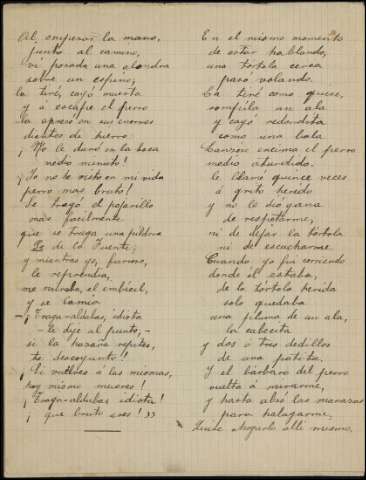 Al empezar la mano,
junto al camino,
vi posada una alondra
sobre un espino;
la tiré, cayó muerta
y á escape el perro
la apresó en sus
dientes de hierro.
¡No le duró en la boca
medio minuto!
¡Yo no he visto en mi vida
perro mas bruto!
Se tragó el pajarillo
más facilmente
que se traga una píldora
de la Fuente;
y mientras yo, furioso,
le reprendía,
me miraba, el imbécil,
y se lamía
— ¡Traga-aldabas, idiota
— le dije al punto, —
si la hazaña repites,
te descoyunto!!
¡Si vuelves á las mismas,
hoy mismo mueres!
¡Traga-aldabas idiota!
¡que bruto eres!"
En el mismo momento
de estar hablando,
una tórtola cerca
pasó volando.
La tiré como quise,
rompíla un ala
y cayó redondita
como una bala
encima el perro
medio aturdido.
le llamé quince veces
á grito herido
y no le dió gana
de respetarme,
ni de dejar la tórtola
ni de escucharme.
Cuando yo fui corriendo
donde él estaba,
de la tórtola herida
solo quedaba
una pluma de un ala,
la cabecita
y dos ó tres dedillos
de una patita.
Y el bárbaro del perro
vuelta á mirarme,
y hasta alzó las manazas
para halagarme.
Quise allí mismo,